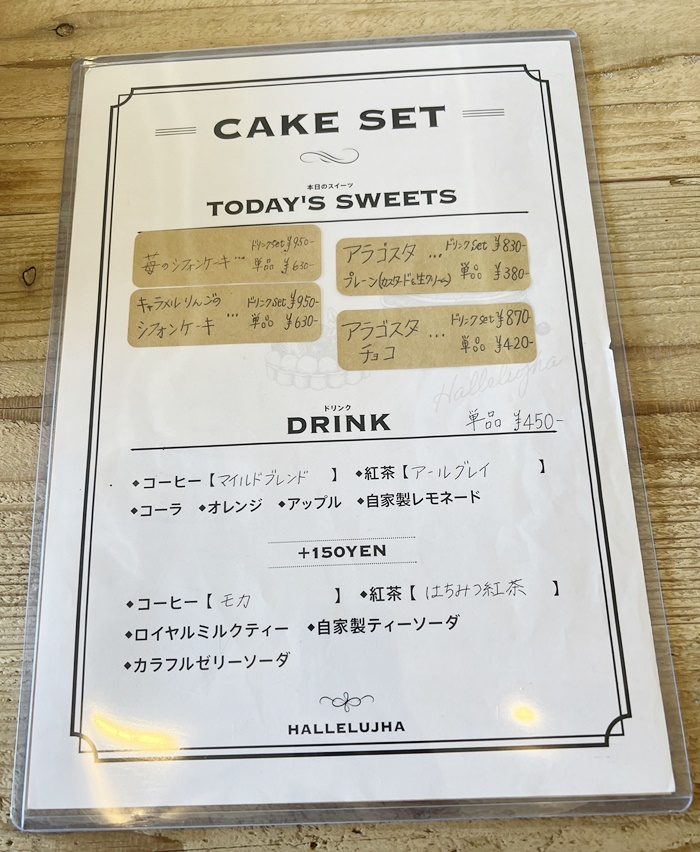 CAKE SET
本日のスイーツ
TODAY'S SWEETS
苺のシフォンケーキ… ドリンクset ¥950-
単品 ¥630-
キャラメルりんごの
シフォンケーキ … ドリンクset ¥950-
単品 ¥630-
アラゴスタ … ドリンクset ¥830-
プレーン(カスタードと生クリーム) 単品 ¥380-
アラゴスタ … ドリンクset ¥870-
チョコ 単品 ¥420-
Hallelujha
ドリンク
DRINK 単品 ¥450-
◆コーヒー【マイルドブレンド 】 ◆紅茶【アールグレイ 】
◆コーラ ◆オレンジ ◆アップル ◆自家製レモネード
+150YEN
◆コーヒー【 モカ 】 ◆紅茶【 はちみつ紅茶 】
◆ロイヤルミルクティー ◆自家製ティーソーダ
◆カラフルゼリーソーダ
HALLELUJHA